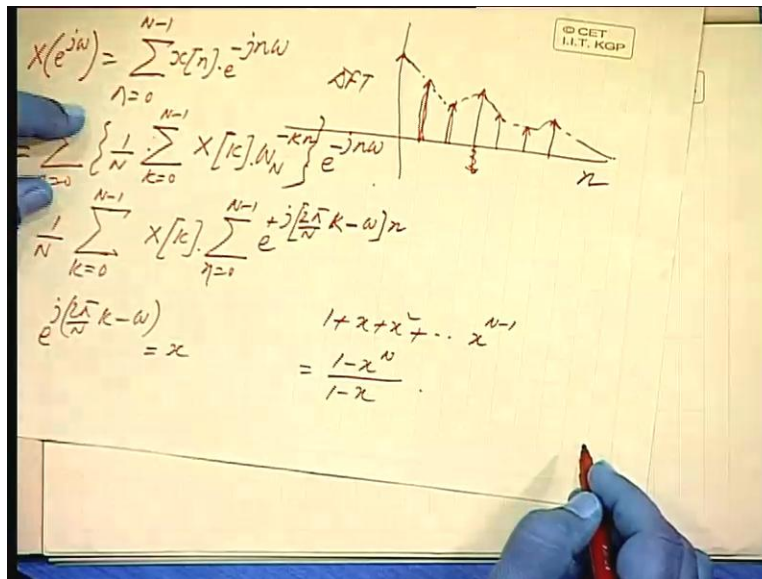 © CET
I.I.T. KGP
X(e^{jω}) = \sum_{n=0}^{N-1} x[n] . e^{-jnω}
DFT
= \sum_{n=0} { \frac{1}{N} . \sum_{k=0}^{N-1} X[k] . W_N^{-kn} } e^{-jnω} .
n
\frac{1}{N} \sum_{k=0}^{N-1} X[k] . \sum_{n=0}^{N-1} e^{+j[\frac{2π}{N} k - ω] n}
e^{j(\frac{2π}{N} k - ω)} = x
1 + x + x^2 + .. x^{N-1}
= \frac{1 - x^N}{1 - x} .